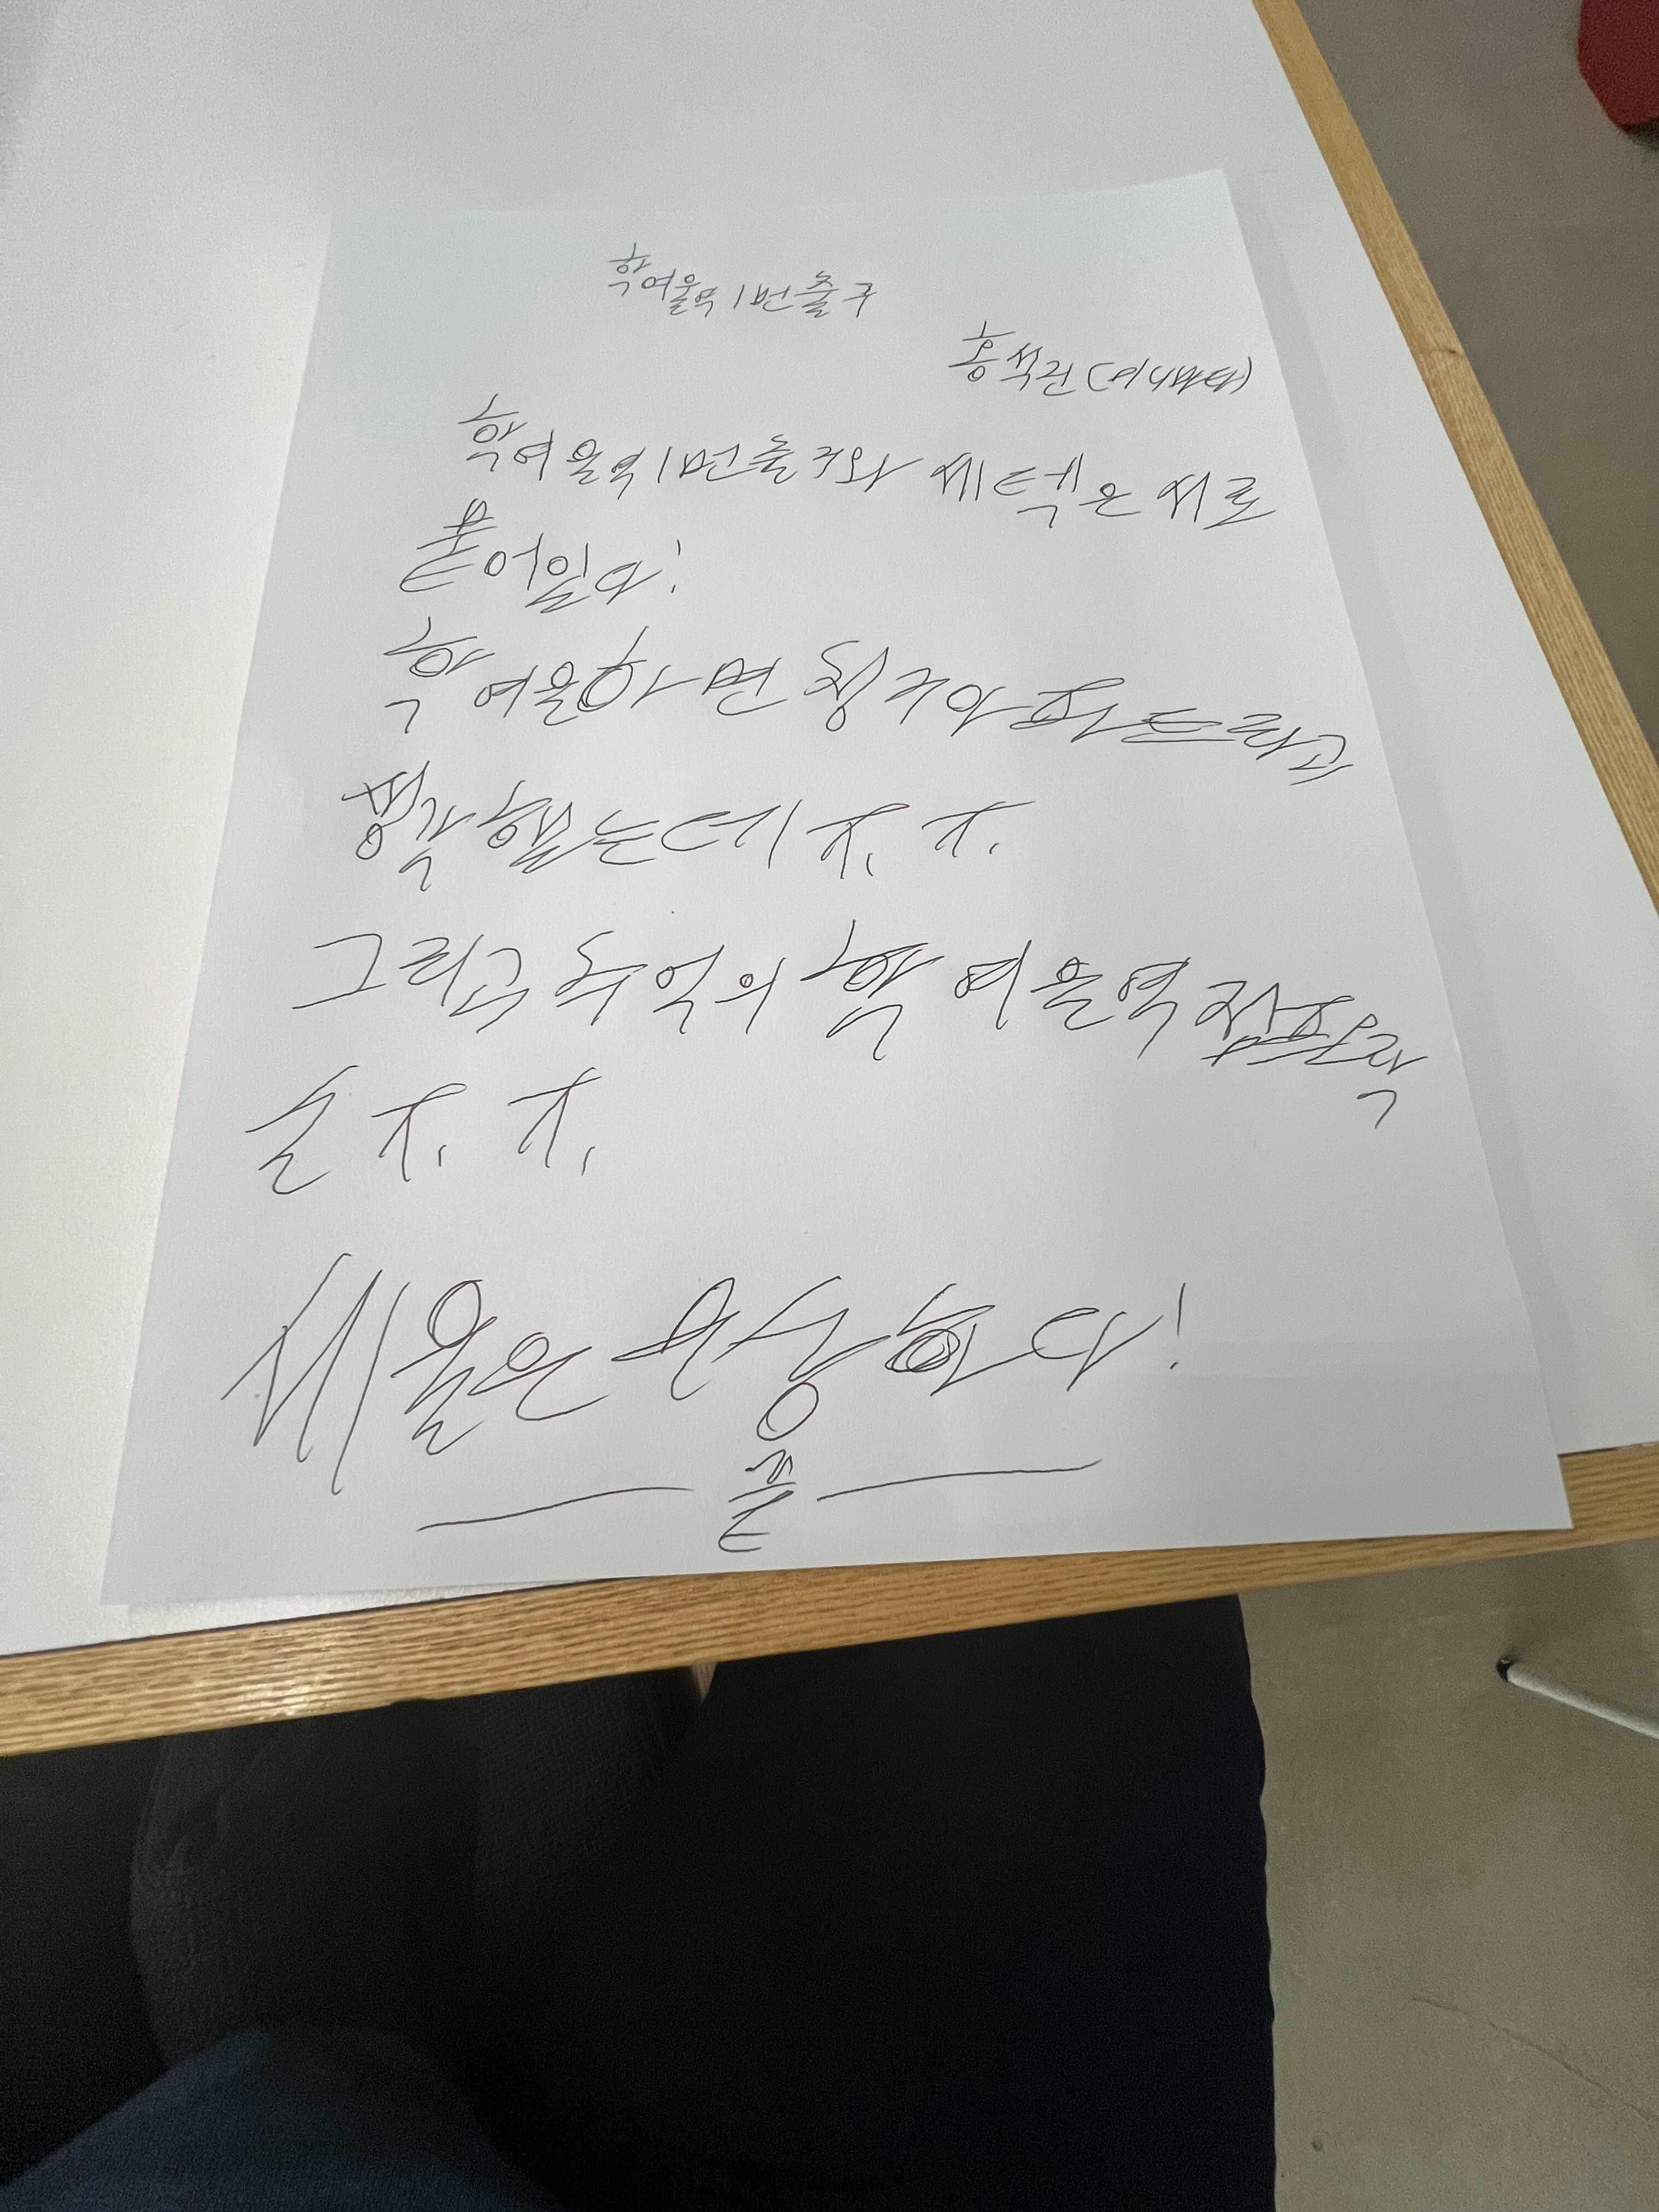 학여울역1번출구
홍석건(
학여울역1번출구와 세텍은 서로
붙어있다!
학여울하면 칭기아파트라고
생각했는데 ㅈ.ㅈ.
그리고 추억의 학여울역
ㅈ.ㅈ.
세월은 무상하다!
끝